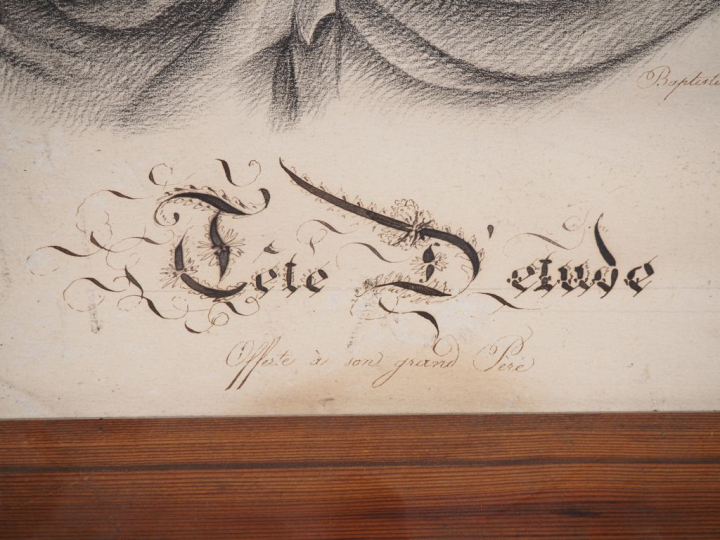 Baptiste
Tête D'etude
Offerte à son grand Père